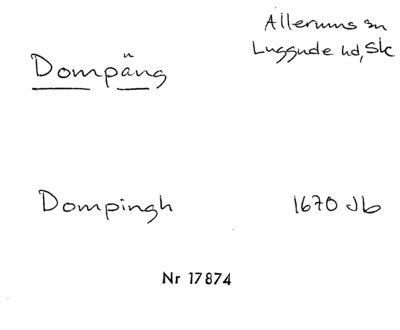 Allerums sn
Luggude hd, Sk
Dompäng
Dompingh 1670 Jb
Nr 17874